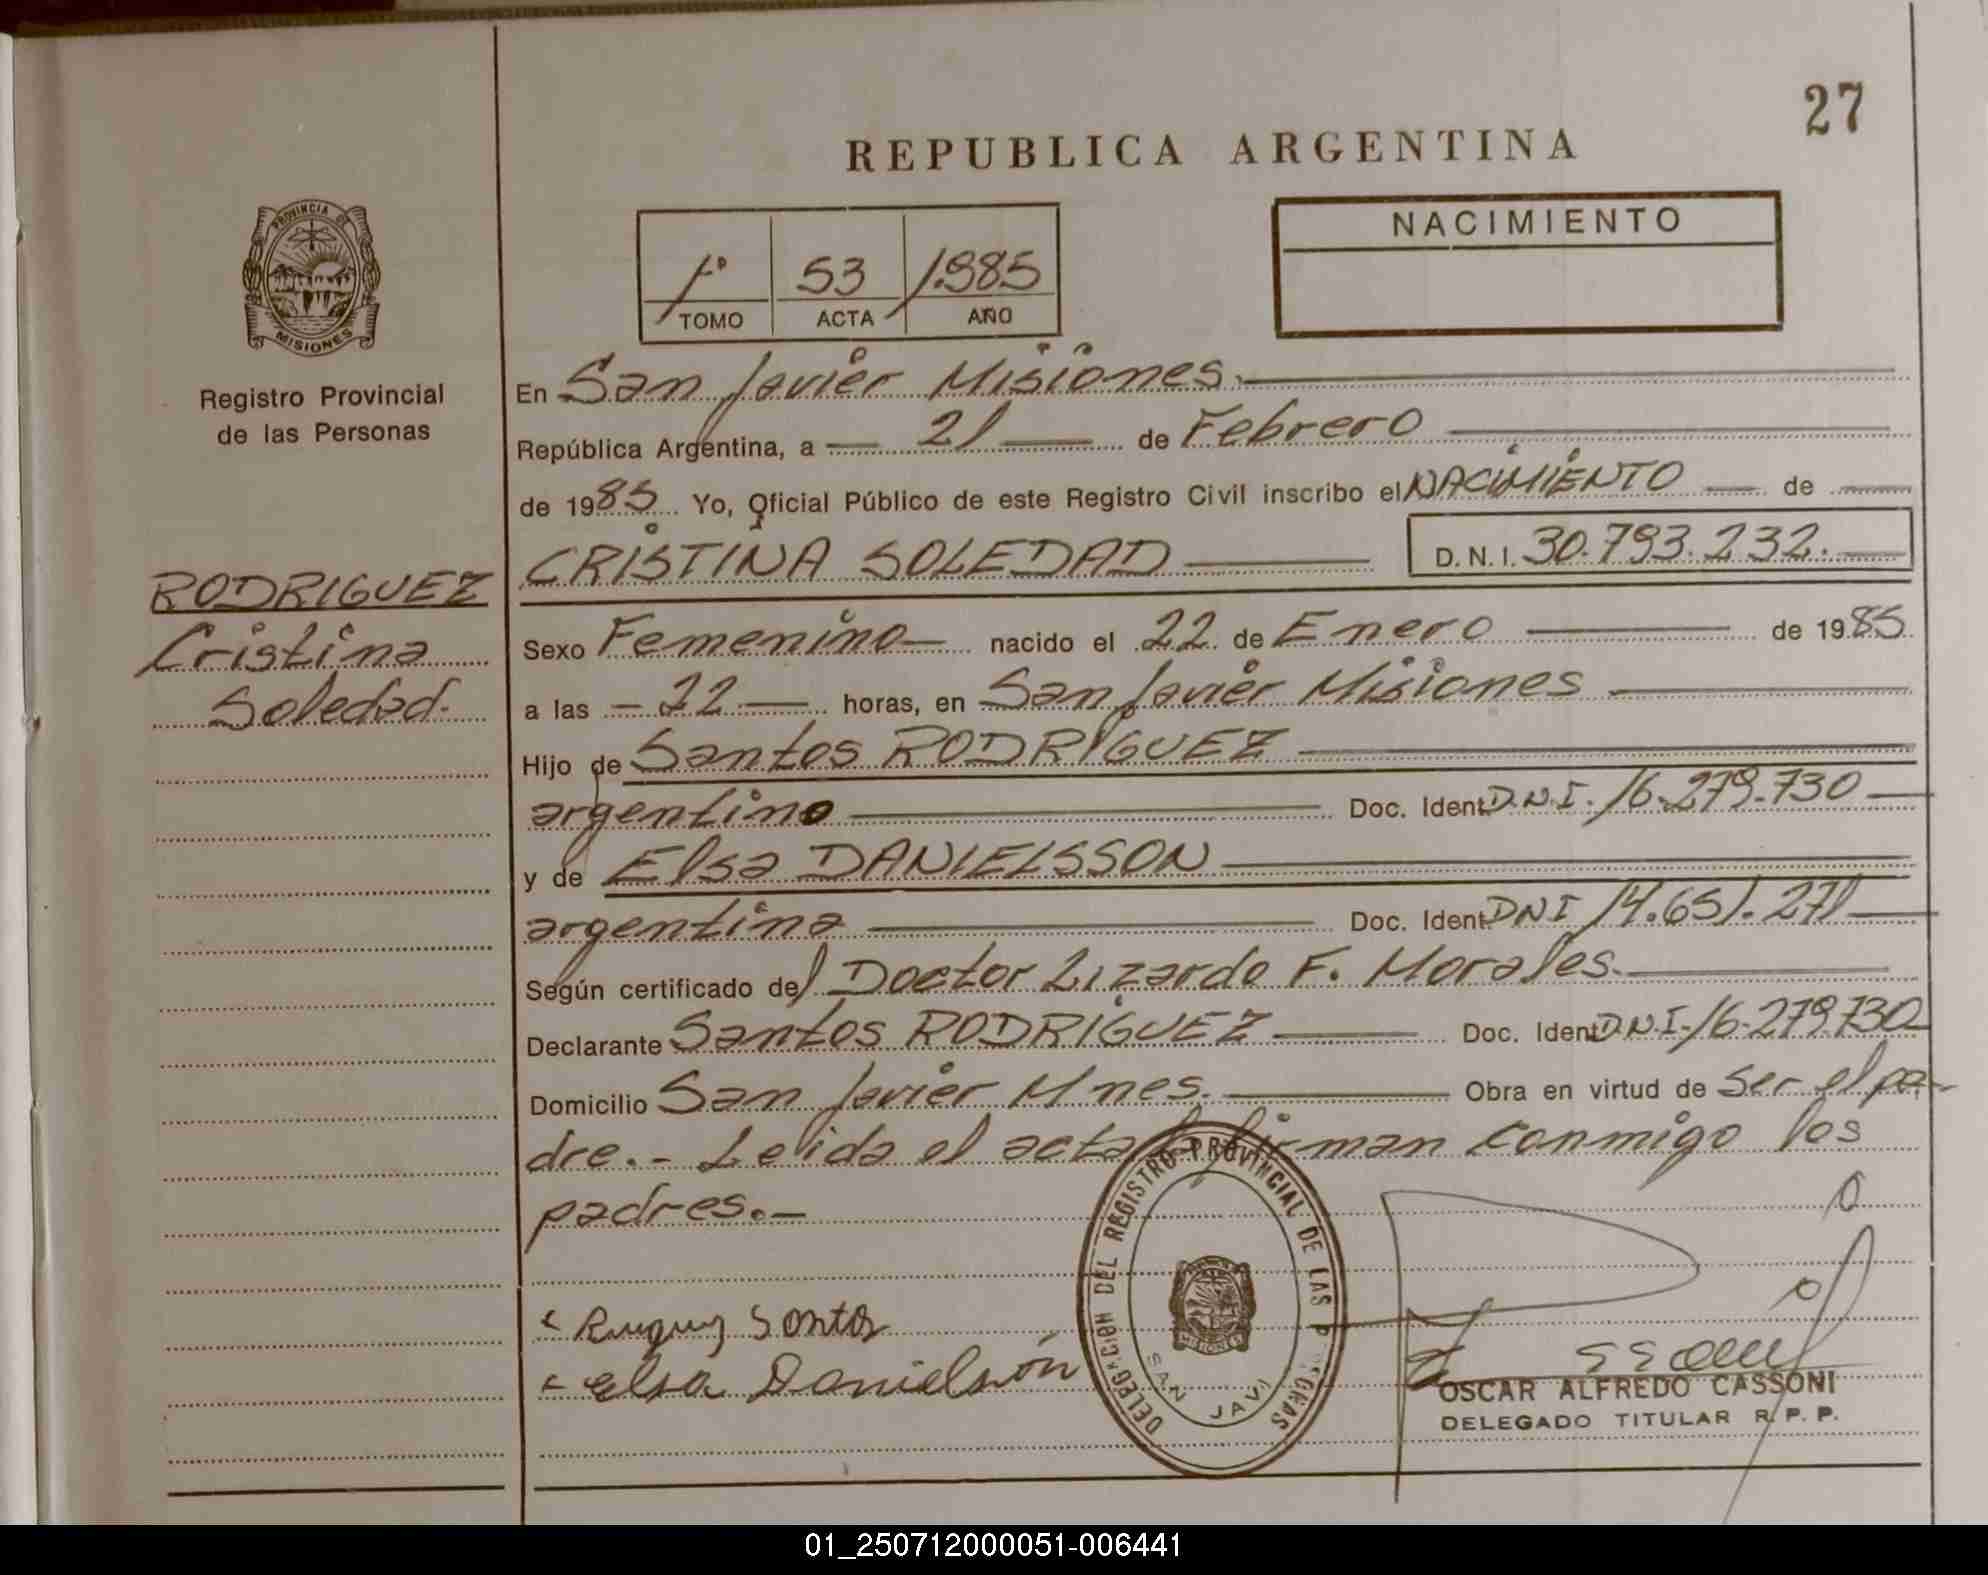 27
REPUBLICA ARGENTINA
PROVINCIA DE
MISIONES
Registro Provincial
de las Personas
RODRIGUEZ
Cristina
Soledad.
1° 53 1.985
TOMO ACTA AÑO
NACIMIENTO
En San Javier Misiones.
República Argentina, a 21 de Febrero
de 1985 Yo, Oficial Público de este Registro Civil inscribo el NACIMIENTO de
CRISTINA SOLEDAD D.N.I. 30.793.232.
Sexo Femenino nacido el 22 de Enero de 1985
a las 22 horas, en San Javier Misiones
Hijo de Santos RODRIGUEZ
argentino Doc. Ident. D.N.I. 16.279.730
y de Elsa DANIELSSON
argentina Doc. Ident. DNI 14.651.271
Según certificado del Doctor Lizardo F. Morales.
Declarante Santos RODRIGUEZ Doc. Ident. D.N.I. 16.279.730
Domicilio San Javier Mnes. Obra en virtud de Ser el pa-
dre.- Leída el acta firman conmigo los
padres.-
Santos
elsa Danielsón
DELEGACION DEL REGISTRO PROVINCIAL DE LAS PERSONAS
MISIONES
SAN JAVI
OSCAR ALFREDO CASSONI
DELEGADO TITULAR R.P.P.
01_250712000051-006441